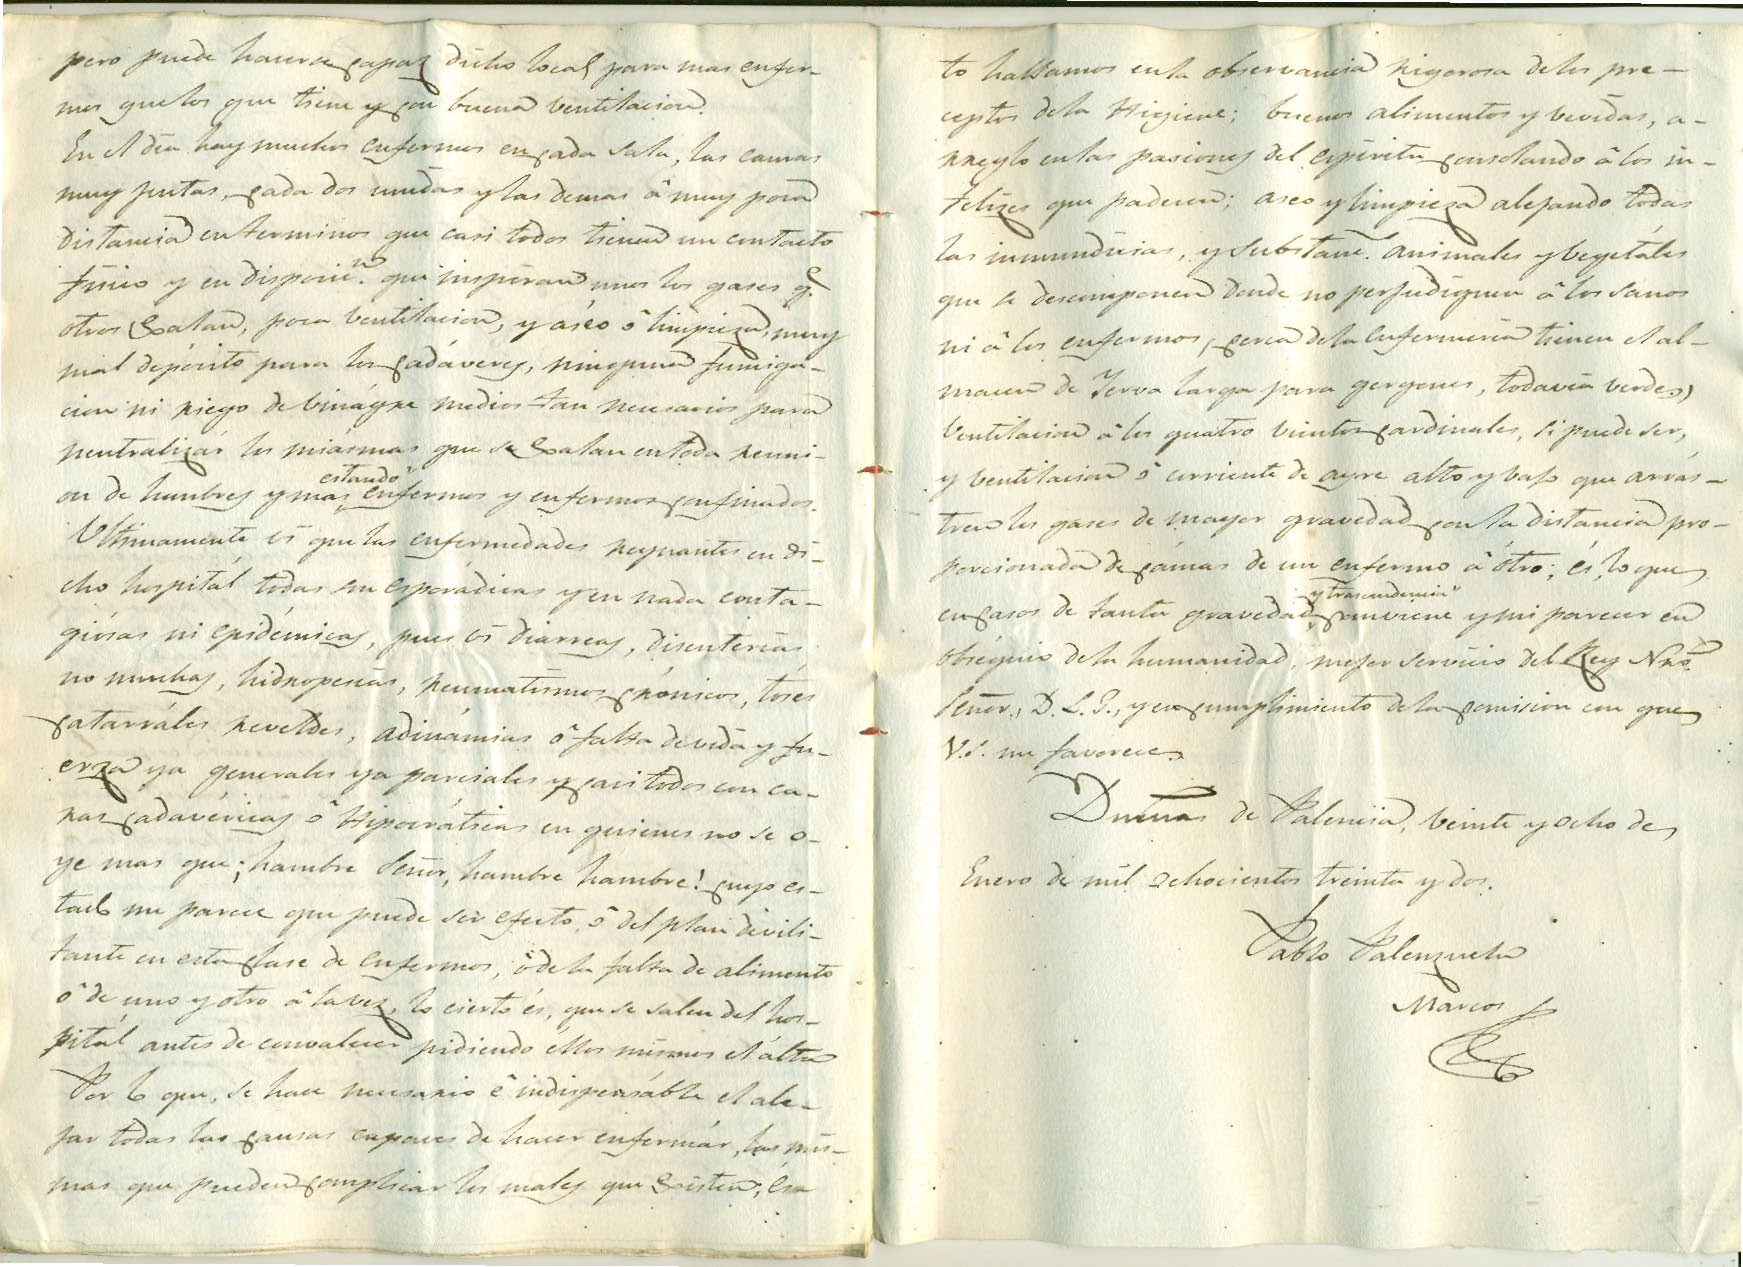 pero puede hacerse capaz dicho local para mas enfer-
mos que los que tiene y con buena ventilacion.
En el dia hay muchos enfermos en cada sala, las camas
muy juntas, cada dos unidas y las demas â muy poca
distancia en terminos que casi todos tienen un contacto
fisico y en disposic.n que inspiran unos los gases q.e
otros exalan, poca ventilacion, y aséo ô limpieza, muy
mal depósito para los cadáveres, ninguna fumiga-
cion ni riego de vinágre medios tan necesarios para
neutralizár los miásmas que se exalan en toda reuni-
on de hombres y mas estando enfermos y enfermos confinados.
Ultimamente és que las enfermedades reynantes en di-
cho hospitál todas son esporádicas y en nada conta-
giósas ni epidémicas, pues és diarreas, disenterias
no muchas, hidropesías, reumatismos crónicos, toses
catarráles reveldes, adinámias ô falta de vida y fu-
erza ya generales ya parciales y casi todos con ca-
ras cadavéricas ô Hipocráticas en quienes no se o-
ye mas que; hambre Señor, hambre hambre! cuyo es-
tado me parece que puede ser efecto, ô del plan devili-
tante en esta clase de enfermos, ô de la falta de alimento
ô de uno y otro â la vez, lo cierto és, que se salen del hos-
pitál antes de convalecer pidiendo éllos mismos el álta
Por lo que, se hace necesario ê indispensáble el ale-
jar todas las causas capaces de hacer enfermár, las mis-
mas que pueden complicar los males que existen; és-
to hallamos en la observancia rigorosa de los pre-
ceptos de la Higiene; buenos alimentos y bevidas, a-
rreglo en las pasiones del espiritu consolando â los in-
felizes que padecen; aseo y limpieza alejando todas
las inmundicias, y substanc.s animales y vegetáles
que se descomponen donde no perjudiquen â los sanos
ni â los enfermos, (cerca de la Enfermeria tienen el al-
macen de Yerva larga para gergones, todavia verde)
ventilacion â los quatro vientos cardinales, si puede ser,
y ventilacion ô corriente de ayre alto y bajo que arrás-
tren los gases de mayor gravedad con la distancia pro-
porcionada de cámas de un enfermo â ótro; és, lo que
en casos de tanta gravedad, y trascendencia conviene y mi parecer en
obséquio de la humanidad, mejor servicio del Rey Nro.
Señor, D. L. G., y en cumplimiento de la comision con que
V.S. me favorece.
Dueñas de Palencia, veinte y ocho de
Enero de mil ochocientos treinta y dos.
Pablo Valenzuela
Marcos